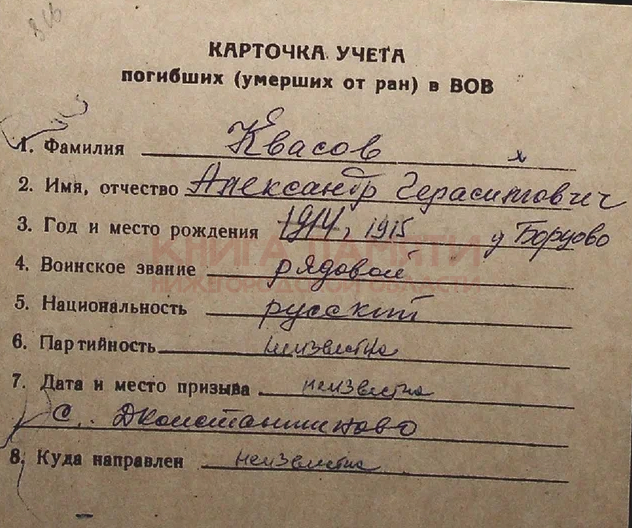 816
КАРТОЧКА УЧЕТА
погибших (умерших от ран) в ВОВ
1. Фамилия Квасов
2. Имя, отчество Александр Герасимович
3. Год и место рождения 1914, 1915 д Борцово
КНИГА ПАМЯТИ
4. Воинское звание рядовой
НИЖЕГОРОДСКОЙ ОБЛАСТИ
5. Национальность русский
6. Партийность неизвестна
7. Дата и место призыва неизвестна
с. Дконстантиново
8. Куда направлен неизвестна